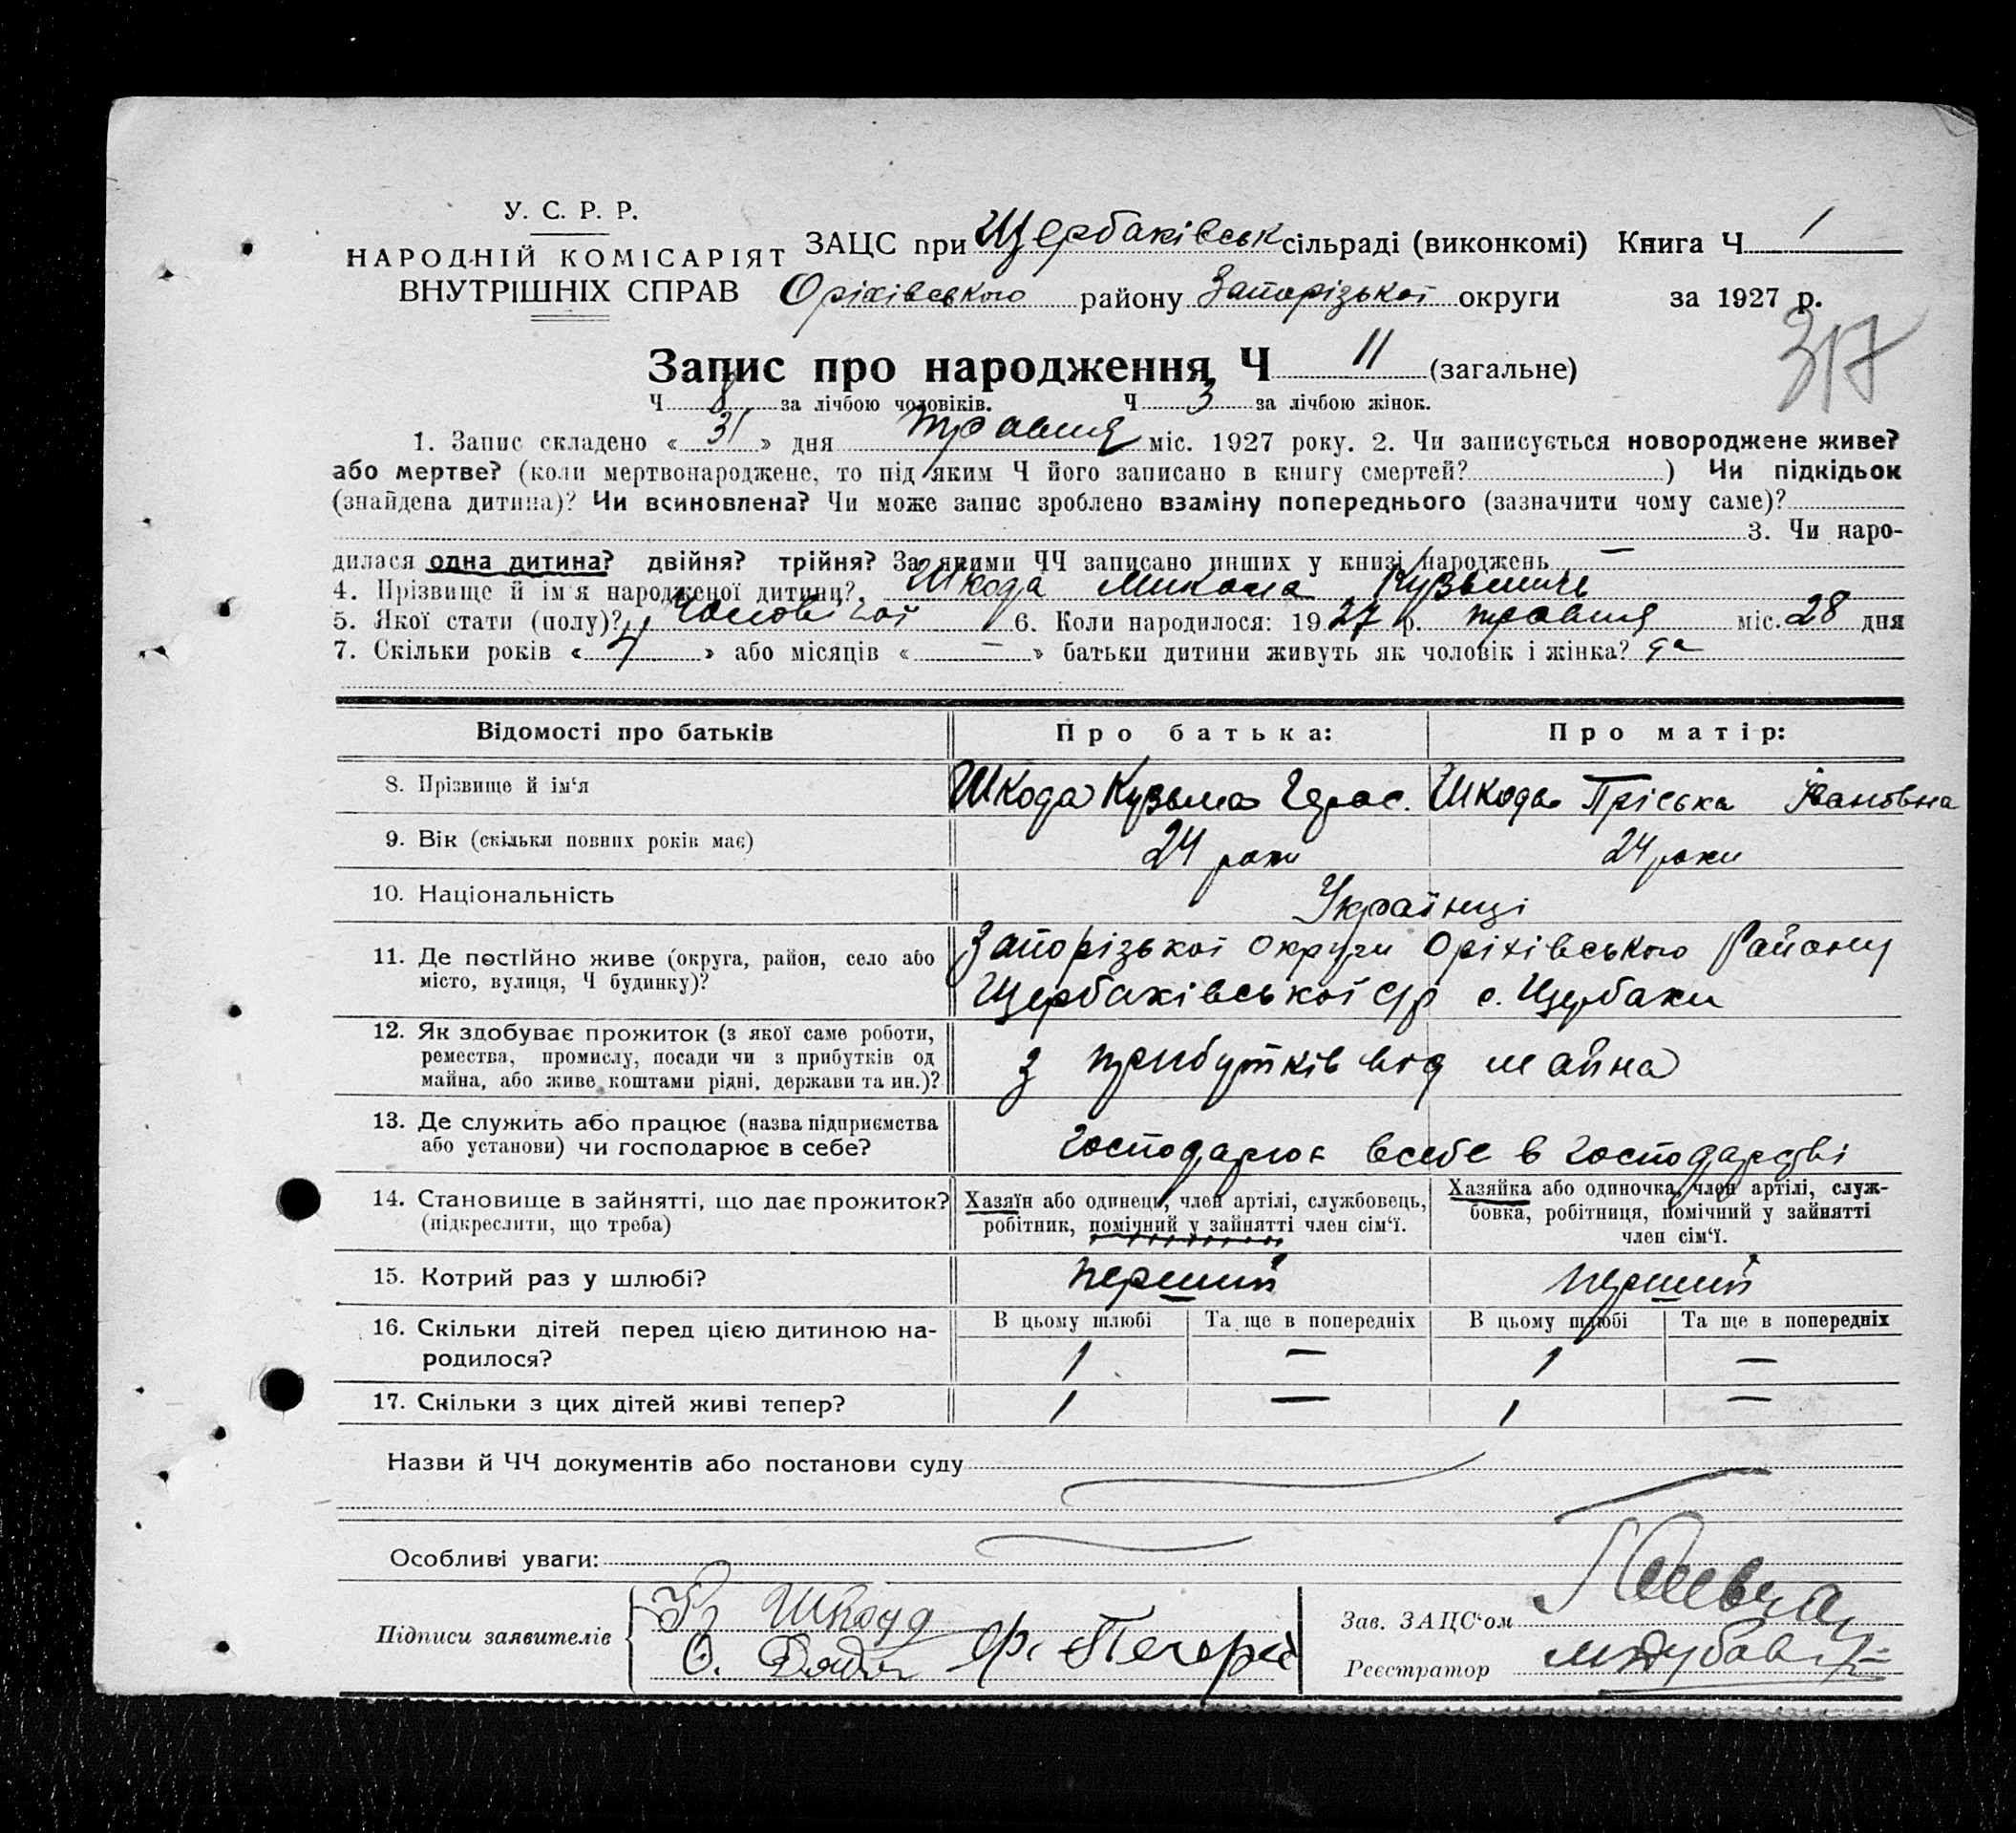 У. С. Р. Р.
НАРОДНІЙ КОМІСАРІЯТ
ВНУТРІШНІХ СПРАВ
ЗАЦС при Щербаківськ сільраді (виконкомі) Книга Ч 1
Оріхівського району Запорізької округи за 1927 р.
317
Запис про народження Ч 11 (загальне)
Ч 8 за лічбою чоловіків. Ч 3 за лічбою жінок.
1. Запис складено « 31 » дня травня міс. 1927 року. 2. Чи записується новороджене живе?
або мертве? (коли мертвонароджене, то під яким Ч його записано в книгу смертей? ) Чи підкідьок
(знайдена дитина)? Чи всиновлена? Чи може запис зроблено взаміну попереднього (зазначити чому саме)?
3. Чи наро-
дилася одна дитина? двійня? трійня? За якими ЧЧ записано инших у книзі народжень —
4. Прізвище й ім'я народженої дитини? Шкода Микола Кузьмичь
5. Якої стати (полу)? Чоловічої 6. Коли народилося: 1927 р. травня міс. 28 дня
7. Скільки років « 4 » або місяців « — » батьки дитини живуть як чоловік і жінка? да
Відомості про батьків Про батька: Про матір:
8. Прізвище й ім'я Шкода Кузьма Герас. Шкода Пріська Івановна
9. Вік (скільки повних років має) 24 роки 24 роки
10. Національність Українці
11. Де постійно живе (округа, район, село або Запорізької округи Оріхівського Району
місто, вулиця, Ч будинку)? Щербаківської с/р с. Щербаки
12. Як здобуває прожиток (з якої саме роботи,
ремества, промислу, посади чи з прибутків од з прибутків від майна
майна, або живе коштами рідні, держави та ин.)?
13. Де служить або працює (назва підприємства
або установи) чи господарює в себе? господарює всебе в господарстві
14. Становище в зайнятті, що дає прожиток? Хазяїн або одинець, член артілі, службовець, Хазяйка або одиночка, член артілі, служ-
(підкреслити, що треба) робітник, помічний у зайнятті член сім'ї. бовка, робітниця, помічний у зайнятті
член сім'ї.
15. Котрий раз у шлюбі? перший перший
16. Скільки дітей перед цією дитиною на- В цьому шлюбі Та ще в попередніх В цьому шлюбі Та ще в попередніх
родилося? 1 — 1 —
17. Скільки з цих дітей живі тепер? 1 — 1 —
Назви й ЧЧ документів або постанови суду
Особливі уваги:
Підписи заявителів Шкода
О.
Зав. ЗАЦС'ом
Реєстратор